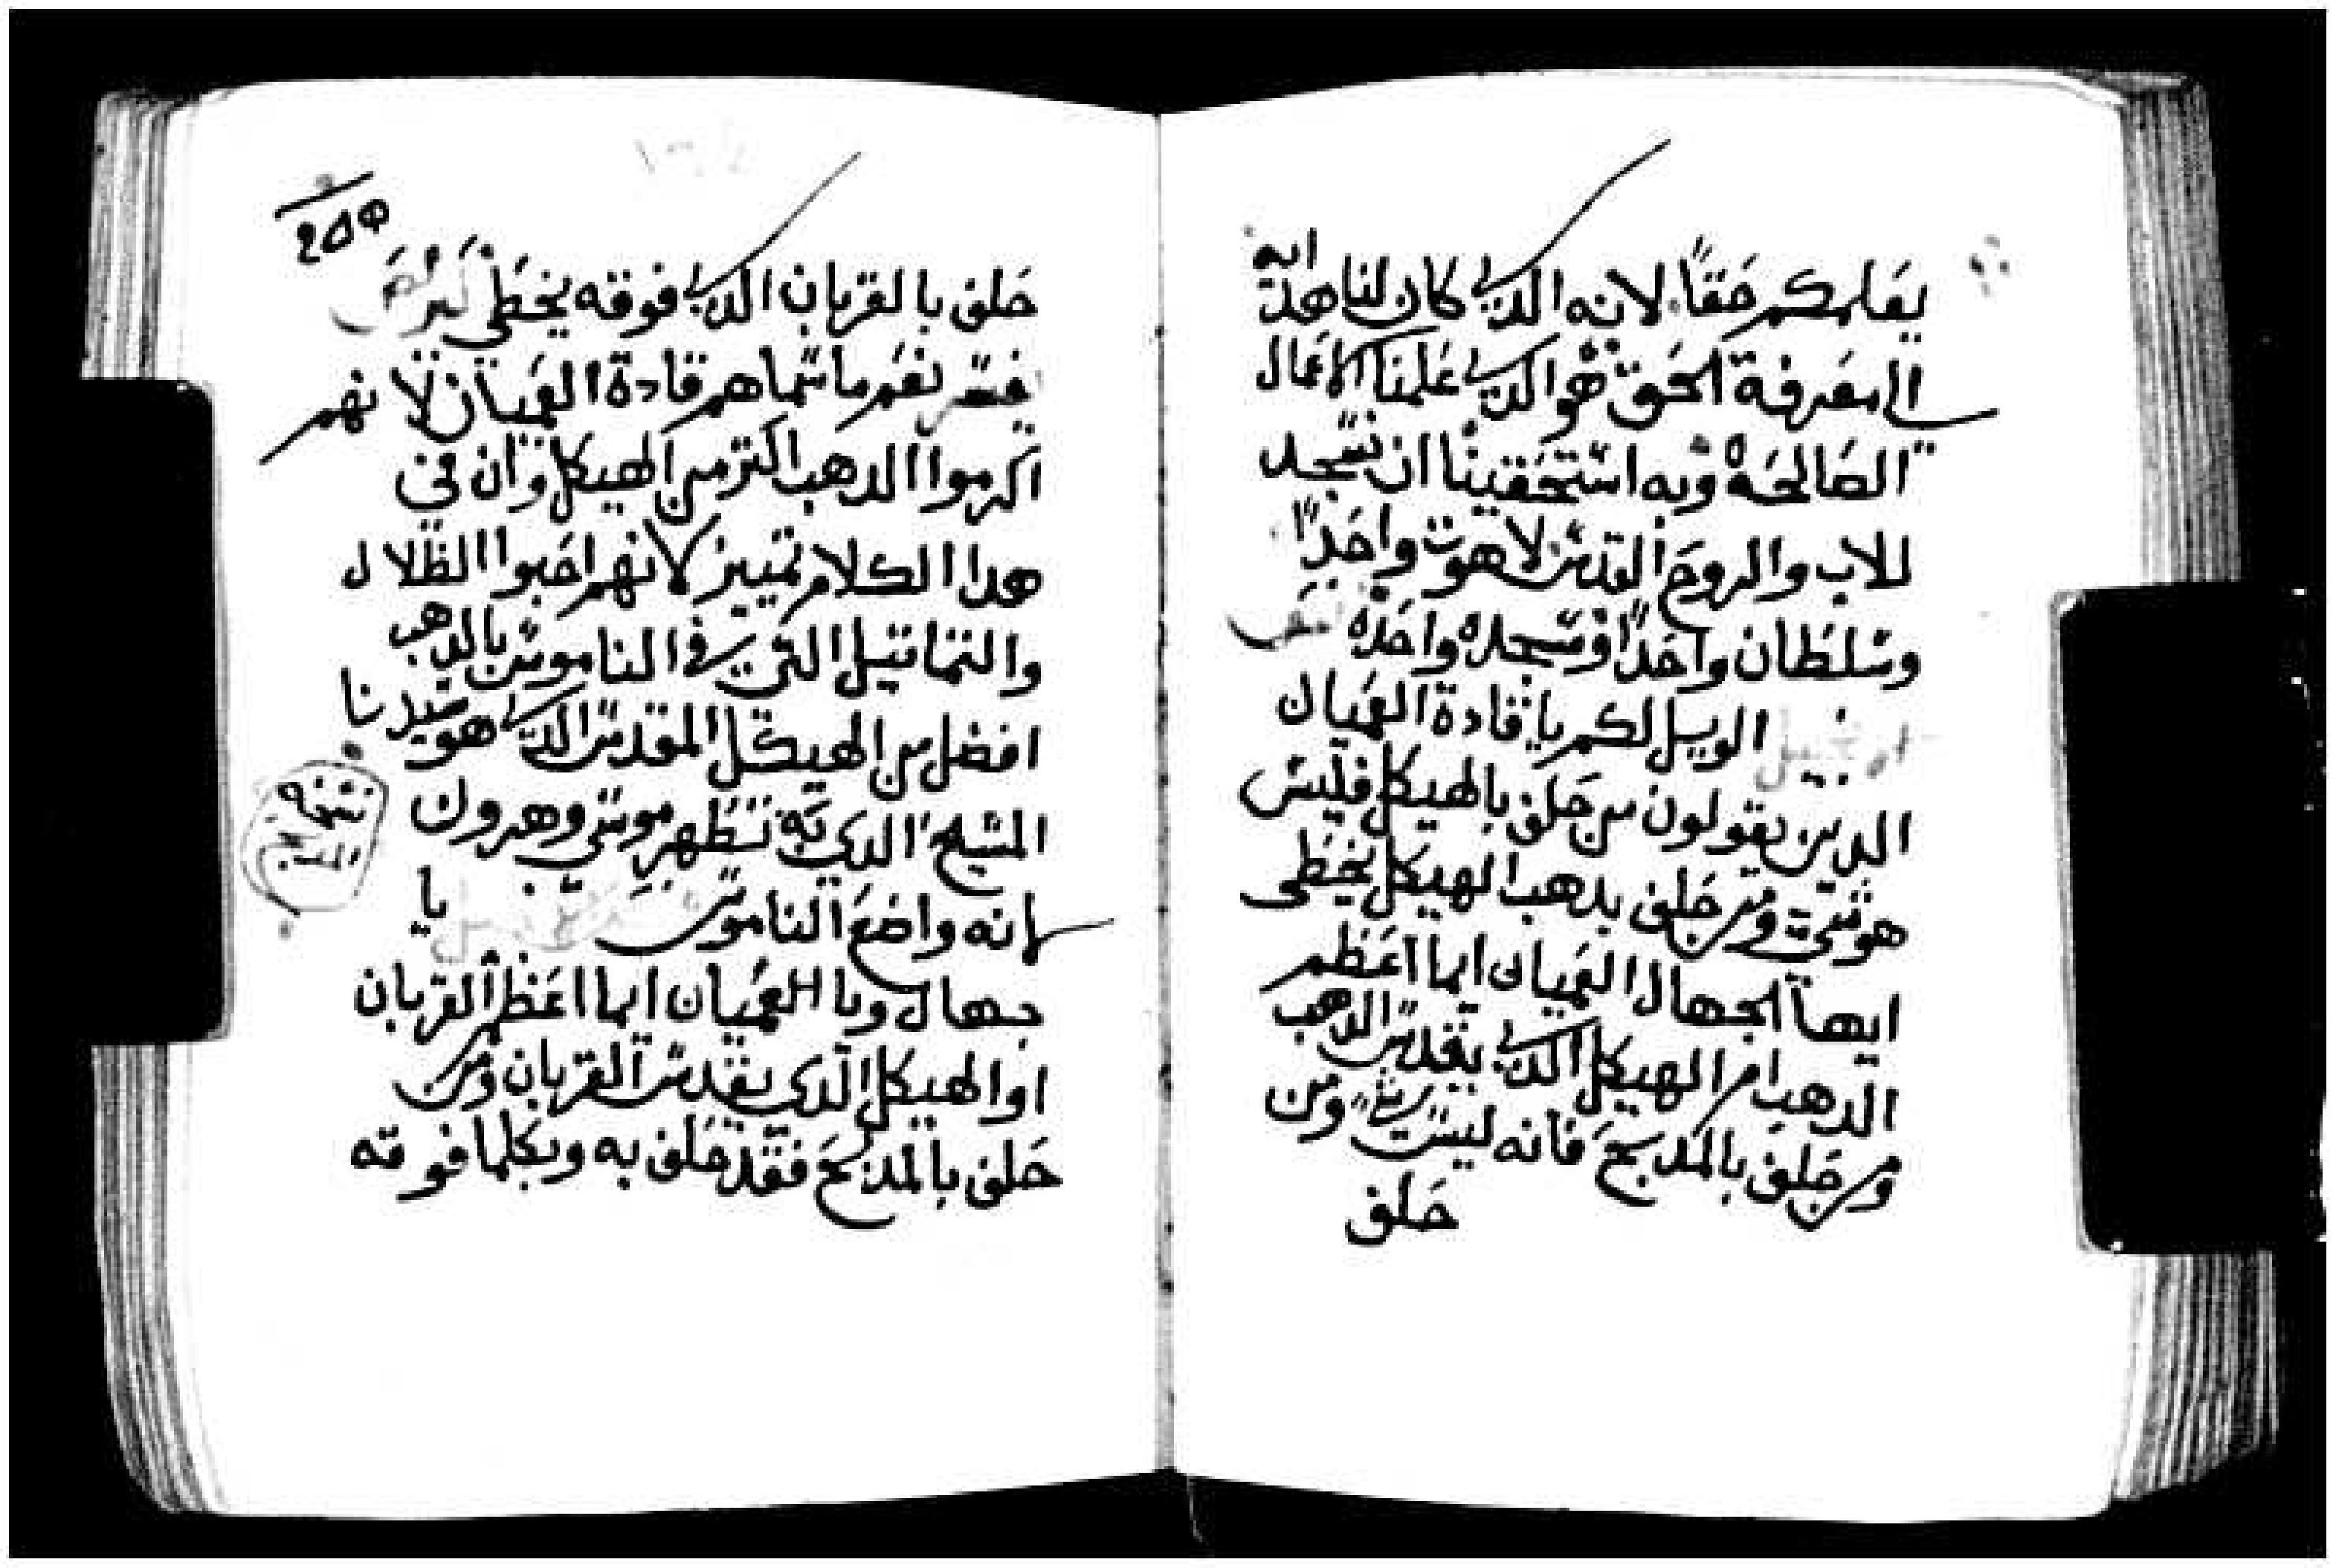 يعلمكم حقاً لانه الدي كان لنا هداية
الى معرفة الحق هو الدي علمنا الاعمال
الصالحة وبه استحقينا ان نسجد
للاب والروح القدس لاهوت واحداً
وسلطان واحداً وسجدة واحدة
الويل لكم يا قادة العميان
الدين يقولون من حلف بالهيكل فليس
هو شي ومن حلف بدهب الهيكل يخطى
ايها الجهال العميان ايما اعظم
الدهب ام الهيكل الدي يقدس الدهب
ومن حلف بالمدبح فانه ليس شي ومن
حلف
٢٥٥
حلف بالقربان الدي فوقه يخطي
يفسر نعم ما سماهم قادة العميان لانهم
اكرموا الدهب اكتر من الهيكل وان في
هدا الكلام تمييز لانهم احبوا الظلال
والتماتيل التي في الناموس بالدهب
افضل من الهيكل المقدس الدي هو سيدنا
المسيح الدي به تظهر موسى وهرون
انه واضع الناموس يا
جهال ويا العميان ايما اعظم القربان
او الهيكل الدي يقدس القربان ومن
حلف بالمدبح فقد حلف به وبكلما فوقه